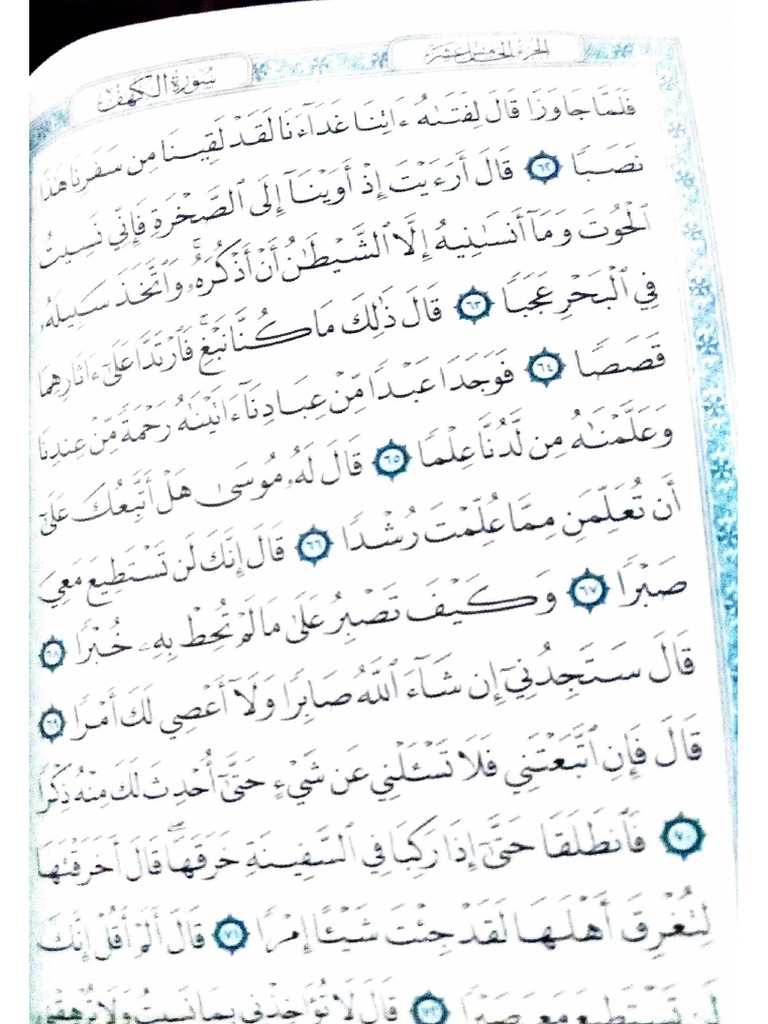 سورة الكهف
الجزء الخامس عشر
فَلَمَّا جَاوَزَا قَالَ لِفَتَىٰهُ ءَاتِنَا غَدَآءَنَا لَقَدْ لَقِينَا مِن سَفَرِنَا هَٰذَا
نَصَبًا ٦٢ قَالَ أَرَءَيْتَ إِذْ أَوَيْنَآ إِلَى ٱلصَّخْرَةِ فَإِنِّي نَسِيتُ
ٱلْحُوتَ وَمَآ أَنسَىٰنِيهُ إِلَّا ٱلشَّيْطَٰنُ أَنْ أَذْكُرَهُۥۚ وَٱتَّخَذَ سَبِيلَهُۥ
فِي ٱلْبَحْرِ عَجَبًا ٦٣ قَالَ ذَٰلِكَ مَا كُنَّا نَبْغِۚ فَٱرْتَدَّا عَلَىٰٓ ءَاثَارِهِمَا
قَصَصًا ٦٤ فَوَجَدَا عَبْدًا مِّنْ عِبَادِنَآ ءَاتَيْنَٰهُ رَحْمَةً مِّنْ عِندِنَا
وَعَلَّمْنَٰهُ مِن لَّدُنَّا عِلْمًا ٦٥ قَالَ لَهُۥ مُوسَىٰ هَلْ أَتَّبِعُكَ عَلَىٰٓ
أَن تُعَلِّمَنِ مِمَّا عُلِّمْتَ رُشْدًا ٦٦ قَالَ إِنَّكَ لَن تَسْتَطِيعَ مَعِيَ
صَبْرًا ٦٧ وَكَيْفَ تَصْبِرُ عَلَىٰ مَا لَمْ تُحِطْ بِهِۦ خُبْرًا ٦٨
قَالَ سَتَجِدُنِيٓ إِن شَآءَ ٱللَّهُ صَابِرًا وَلَآ أَعْصِي لَكَ أَمْرًا ٦٩
قَالَ فَإِنِ ٱتَّبَعْتَنِي فَلَا تَسْـَٔلْنِي عَن شَيْءٍ حَتَّىٰٓ أُحْدِثَ لَكَ مِنْهُ ذِكْرًا
٧٠ فَٱنطَلَقَا حَتَّىٰٓ إِذَا رَكِبَا فِي ٱلسَّفِينَةِ خَرَقَهَاۖ قَالَ أَخَرَقْتَهَا
لِتُغْرِقَ أَهْلَهَا لَقَدْ جِئْتَ شَيْـًٔا إِمْرًا ٧١ قَالَ أَلَمْ أَقُلْ إِنَّكَ
لَن تَسْتَطِيعَ مَعِيَ صَبْرًا ٧٢ قَالَ لَا تُؤَاخِذْنِي بِمَا نَسِيتُ وَلَا تُرْهِقْنِي